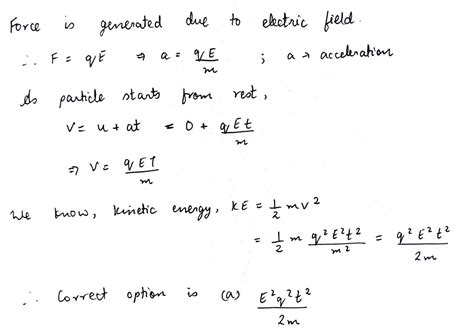 Force is generated due to electric field.
∴ F = qE ⇒ a = qE/m ; a → acceleration
As particle starts from rest,
V = u + at = 0 + qEt/m
⇒ V = qET/m
We know, kinetic energy, KE = 1/2 mv²
= 1/2 m q²E²t²/m² = q²E²t²/2m
∴ Correct option is (a) E²q²t²/2m